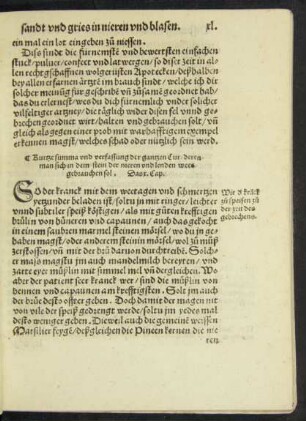 sandt vnd gries in nieren vnd blasen. xl.
ein mal ein lot eingeben zů niessen.
Diso sinde die fürnemste vnd bewertsten einfachen
stuck/ puluer/ confect vnd latwergen/ so diser zeit in al
len rechtgschaffnen wolgerüsten Apotecken/ deßhalben
bey allen erfarnen ärtzten im brauch sinde/ welche ich dir
solcher meinung für geschribẽ vñ zůsamẽ geordnet hab/
das du erlernest/ wes du dich fürnemlich vnder solicher
vilfeltiger artzney/ die täglich wider disen fel vnnd ge
brechen geordnet wirt/ halten vnd gebrauchen solt/ vñ
gleich als gegen einer prob mit warhafftigem exempel
erkennen magst/ welches schad oder nützlich sein werd.
Kurtze summa vnd verfassung der gantzen Cur/ deren
man sich in dem stein der nieren vnd lenden weet
gebrauchen sol. Das x. Cap.
So der kranck mit dem weetagen vnd schmertzen
yetzunder beladen ist/ soltu jn mit ringer/ leichter
vnnd subtiler speiß köstigen/ als mit gůten krefftigen
brülin von hüneren vnd capaunen/ auch das gekocht
in einem saubren marmelsteinen mörsel/ wo du jn ge
haben magst/ oder anderem steinin mörsel/ wol zů můß
zerstossen/ vñ jn mit der brü daruon durchtreibẽ. Solch
er maß magstu jm auch mandelmilch bereyten/ vnd
zarte eyer müßlin mit simmel mel vñ dergleichen. Wo
aber der patient seer kranck wer/ sind die müßlin von
hennen vnd capaunen am krefftigsten. Solt jm auch
der brüe desto offter geben. Doch damit der magen nit
von vile der speiß gedrengt werde/ soltu jm yedes mal
desto weniger geben. Dieweil auch die gemeinẽ weissen
Marsilier feygẽ/ deßgleichen die Pineen kernen die nie
ren
Wie d' kräck
zů speisen zů
der zeit des
gebrechens.